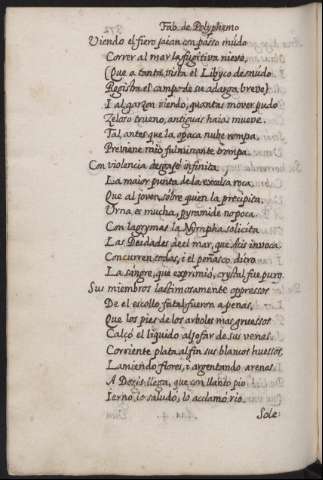 Fab. de Polyphemo
Viendo el fiero jaian con passo mudo
Correr al mar la fugitiva nieve,
(Que a tanta vista el Libyco desnudo
Registra el campo de su adarga breve)
I al garzon viendo, quantas mover pudo
Zeloso trueno, antiguas haias mueve.
Tal, antes que la opaca nube rompa,
Previene raio fulminante trompa.
Con violencia desgajó infinita
La maior punta de la excelsa roca,
Que al joven, sobre quien la precipita,
Urna es mucha, pyramide no poca.
Con lagrymas la Nympha solicita
Las Deidades de el mar, que Acis invoca.
Concurren todas, i el peñasco duro
La sangre, que exprimió, crystal fue puro.
Sus miembros lastimosamente oppressos
De el escollo fatal fueron a penas,
Que los pies de los arboles mas gruessos
Calçó el liquido aljofar de sus venas.
Corriente plata al fin sus blancos huessos,
Lamiendo flores, i argentando arenas
A Doris llega, que con llanto pio
Ierno lo saludó, lo acclamó rio.
Sole